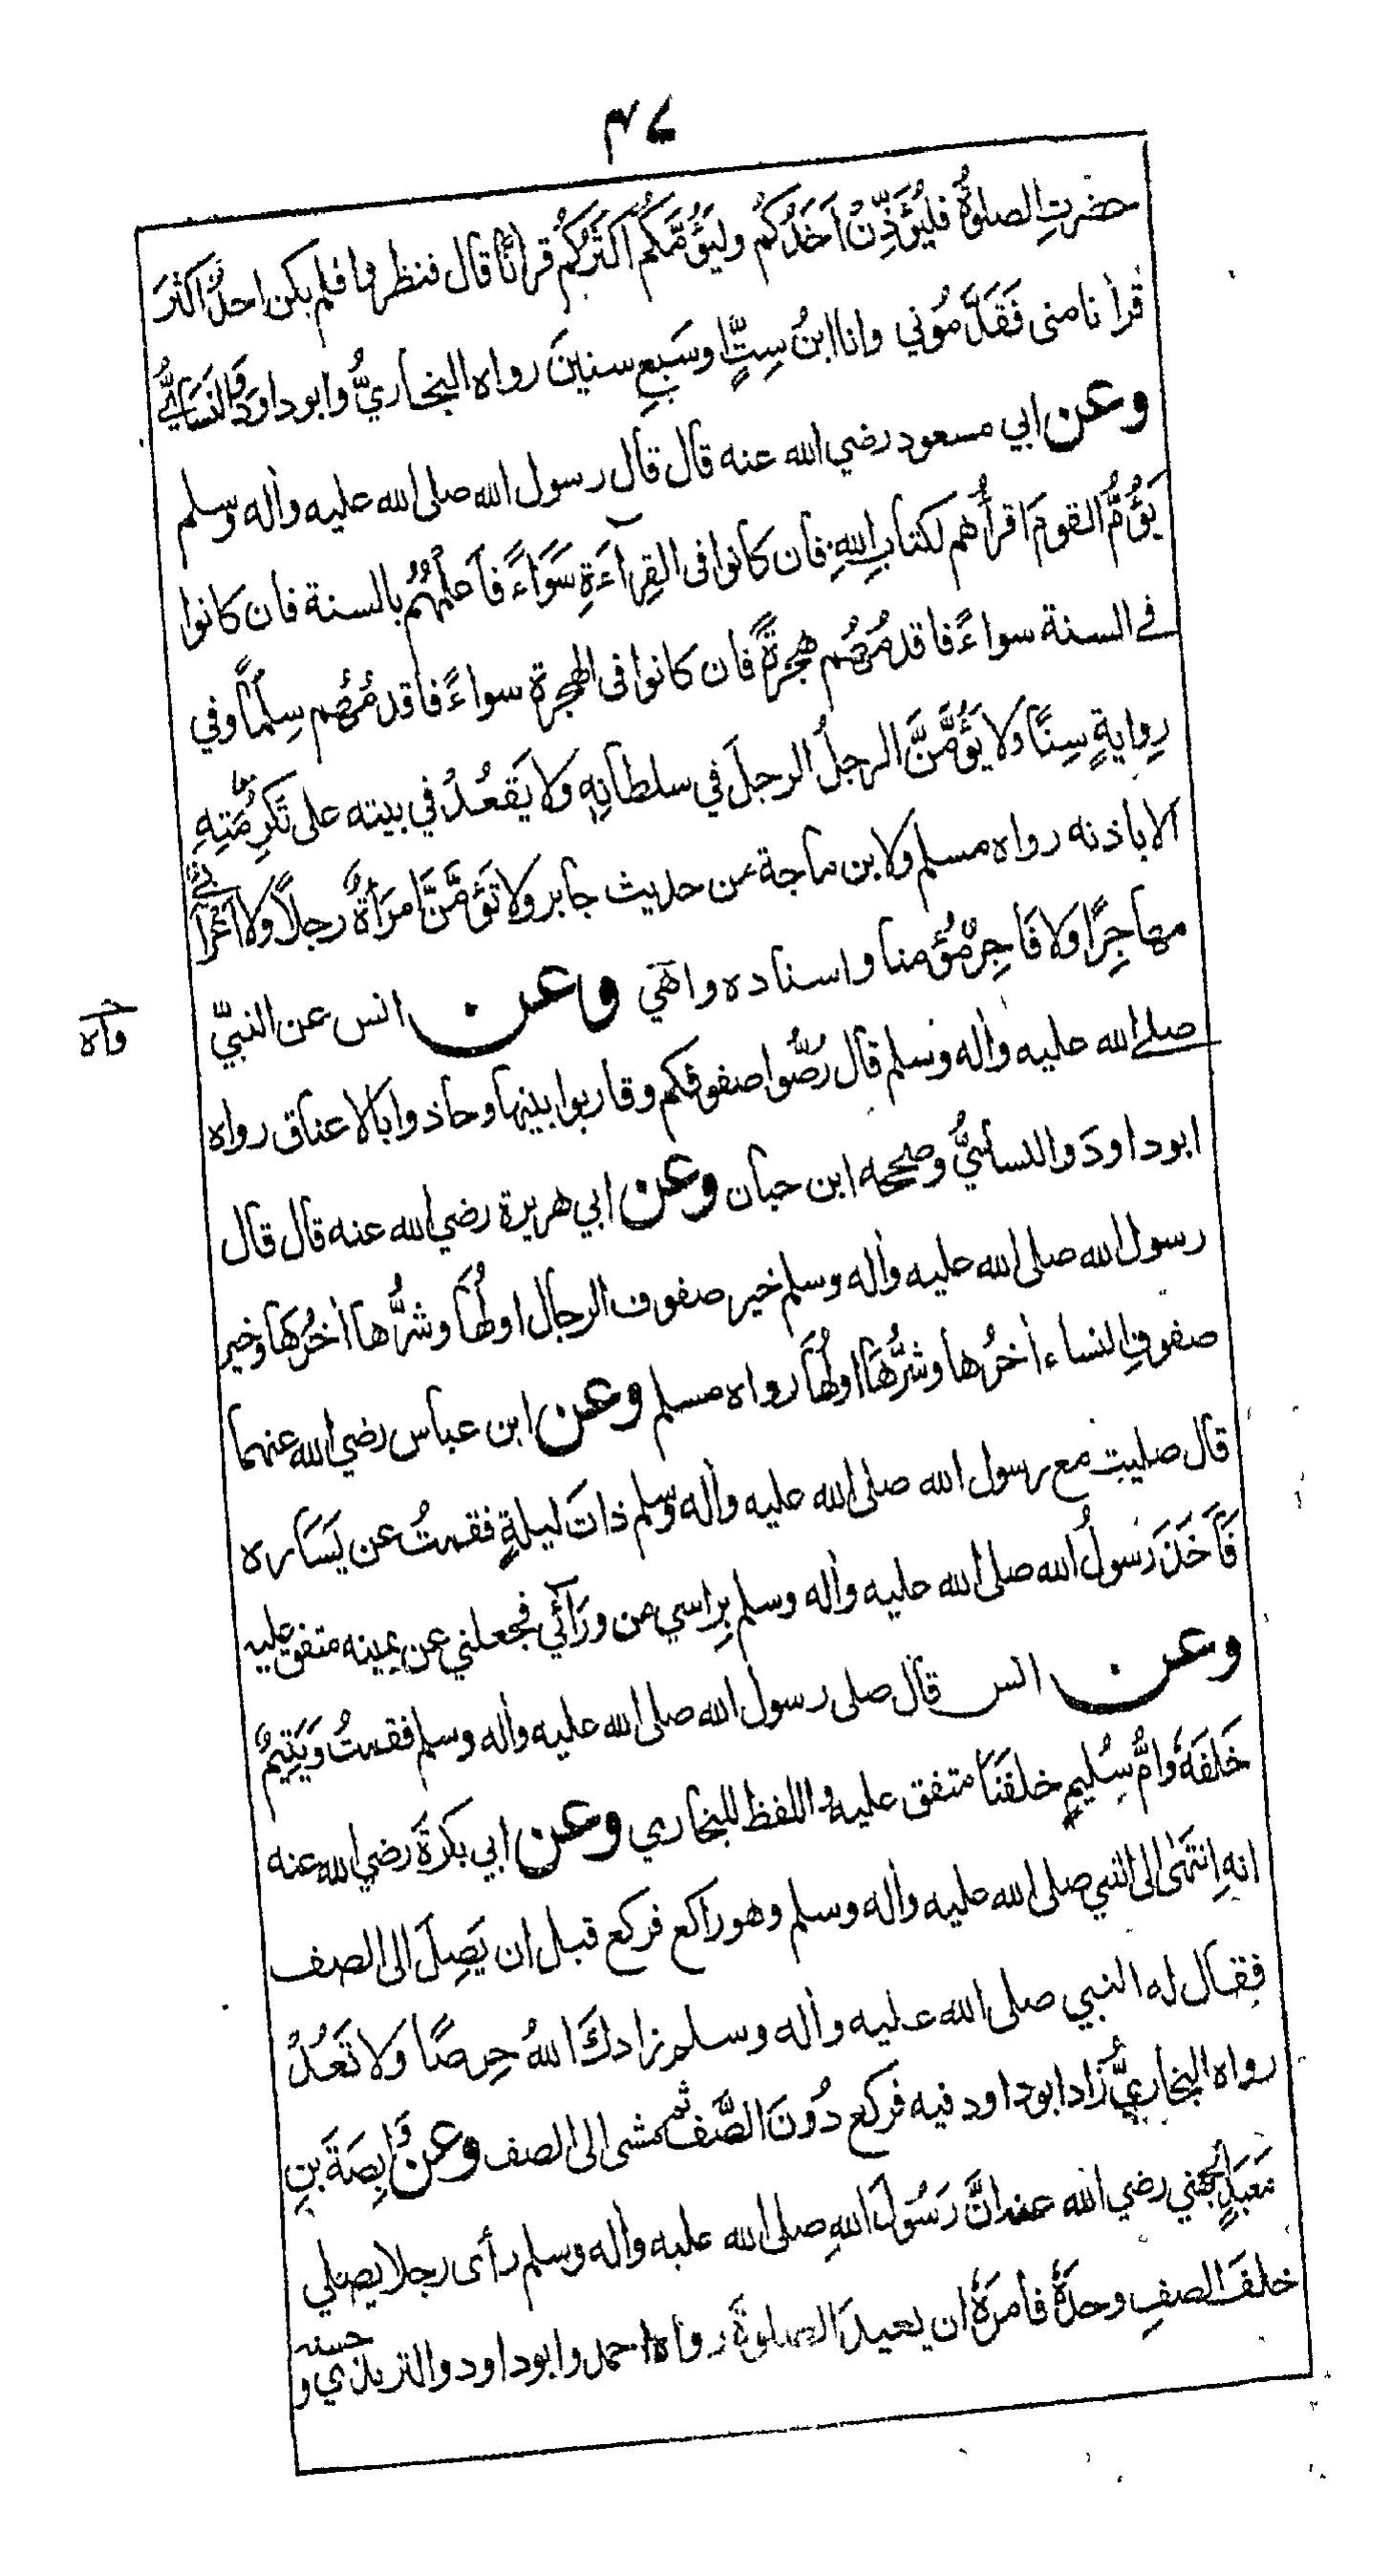 ٤٧
حضرتِ الصلوةُ فليُؤَذِّنْ اَحَدُكُم وليَؤُمَّكُم اَكْثَرُكُم قرانًا قال فنظروا فلم يكن احدٌ اكثرَ
قرانا منى فَقَدَّمُوني وانا ابنُ سِتٍّ او سَبعِ سنينَ رواه البخاريُّ وابو داودَ والنَسَائيُّ
وعن ابي مسعود رضي الله عنه قال قال رسول الله صلى الله عليه واٰله وسلم
يَؤُمُّ القومَ اقرأُهم لكتابِ اللهِ فان كانوا فى القِراءَةِ سَوَاءً فاَعلمُهُم بالسنة فان كانوا
في السنة سواءً فاقدمُهُم هِجرَةً فان كانوا فى الهجرة سواءً فاقدمُهُم سِلمًا وفي
رِوايةٍ سِنًّا ولا يَؤُمَّنَّ الرجلُ الرجلَ في سلطانِهِ ولا يَقعُدُ في بيته على تَكرِمَتِهِ
الا باذنه رواه مسلم ولابن ماجة من حديث جابر ولا تَؤُمَّنَّ امرَأةٌ رجلاً ولا اعرابي
مهاجِرًا ولا فَاجِرٌ مُؤمنا واسناده واهي وعن انس عن النبيّ
واه
صلے الله عليه واٰله وسلم قال رُصُّوا صفوفكم وقاربوا بينها وحاذوا بالاعناق رواه
ابو داودَ والنسائيُّ وصححه ابن حبان وعن ابي هريرة رضي الله عنه قال قال
رسول الله صلى الله عليه واٰله وسلم خير صفوف الرجال اولُها وشرُّها اٰخرُها وخير
صفوفِ النساء اٰخرُها وشرُّها اولُها رواه مسلم وعن ابن عباس رضي الله عنهما
قال صليت مع رسول الله صلى الله عليه واٰله وسلم ذاتَ ليلةٍ فقمتُ عن يَسَاره
فَاَخَذَ رَسولُ الله صلى الله عليه واٰله وسلم بِراسي من ورَائي فجعلني عن يمينه متفق عليه
وعن انس قال صلى رسول الله صلى الله عليه واٰله وسلم فقمتُ وَيَتِيمٌ
خَلفَهٗ وامُّ سُليمٍ خلفَنَا متفق عليه واللفظ للبخاري وعن ابي بكرةَ رضي الله عنه
انهِ انتهٰى الى النبي صلى الله عليه واٰله وسلم وهو راكع فركع قبل ان يَصِلَ الى الصف
فقال له النبي صلى الله عليه واٰله وسلم زادكَ اللهُ حِرصًا ولا تَعُدْ
رواه البخاريُّ زاد ابو داود فيه فركع دُونَ الصَّف ثم مشى الى الصف وعن وابِصَةَ بنِ
مَعبَدٍ الجهني رضي الله عنه انَّ رَسُولَ اللهِ صلى الله عليه واٰله وسلم رأى رجلا يصلي
خلفَ الصفِ وحدَهٗ فامرَهٗ ان يعيدَ الصلوةَ رواه احمد وابو داود والترمذي وحسنه